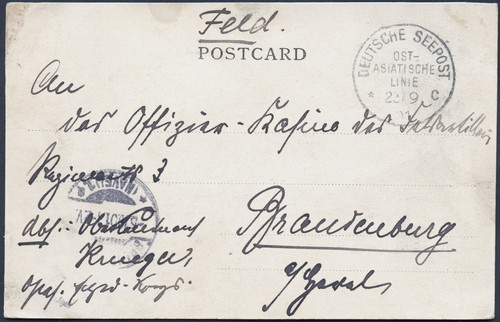 Feld.
POSTCARD
DEUTSCHE SEEPOST
OST-
ASIATISCHE
LINIE
* 23/9 c
An
das Offizier-Kasino des Feldartillerie
Regiments 3
Abs.: Oberleutnant
Brandenburg
Krueger,
a/Havel.
Ostas. Exped-Korps.